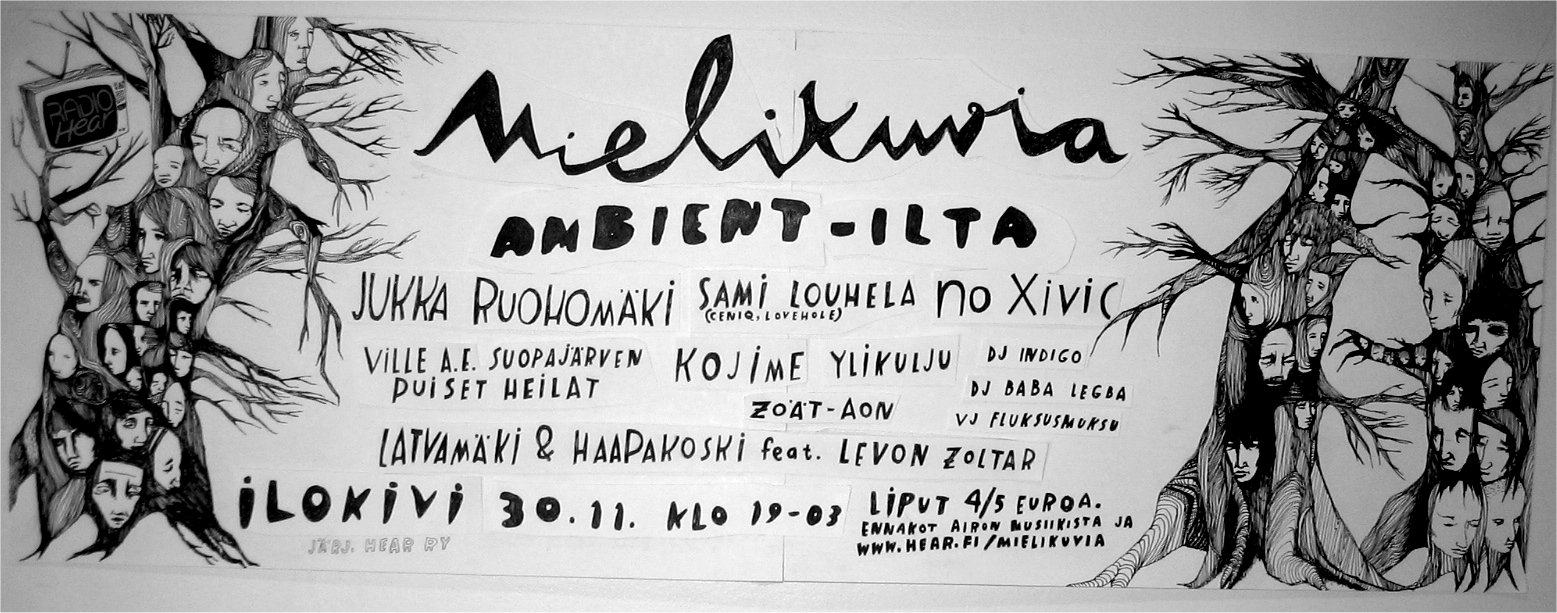 RADIO
Hear
Mielikuvia
AMBIENT-ILTA
JUKKA RUOHOMÄKI SAMI LOUHELA no Xivic
(CENIQ, LOVEHOLE)
VILLE A.E. SUOPAJÄRVEN KOJIME YLIKULJU DJ INDIGO
PUISET HEILAT DJ BABA LEGBA
ZÖÄT-AON VJ FLUKSUSMUKSU
LATVAMÄKI & HAAPAKOSKI feat. LEVON ZOLTAR
ILOKIVI 30.11. KLO 19-03 LIPUT 4/5 EUROA.
ENNAKOT AIRON MUSIIKISTA JA
WWW.HEAR.FI/MIELIKUVIA
JÄRJ. HEAR RY